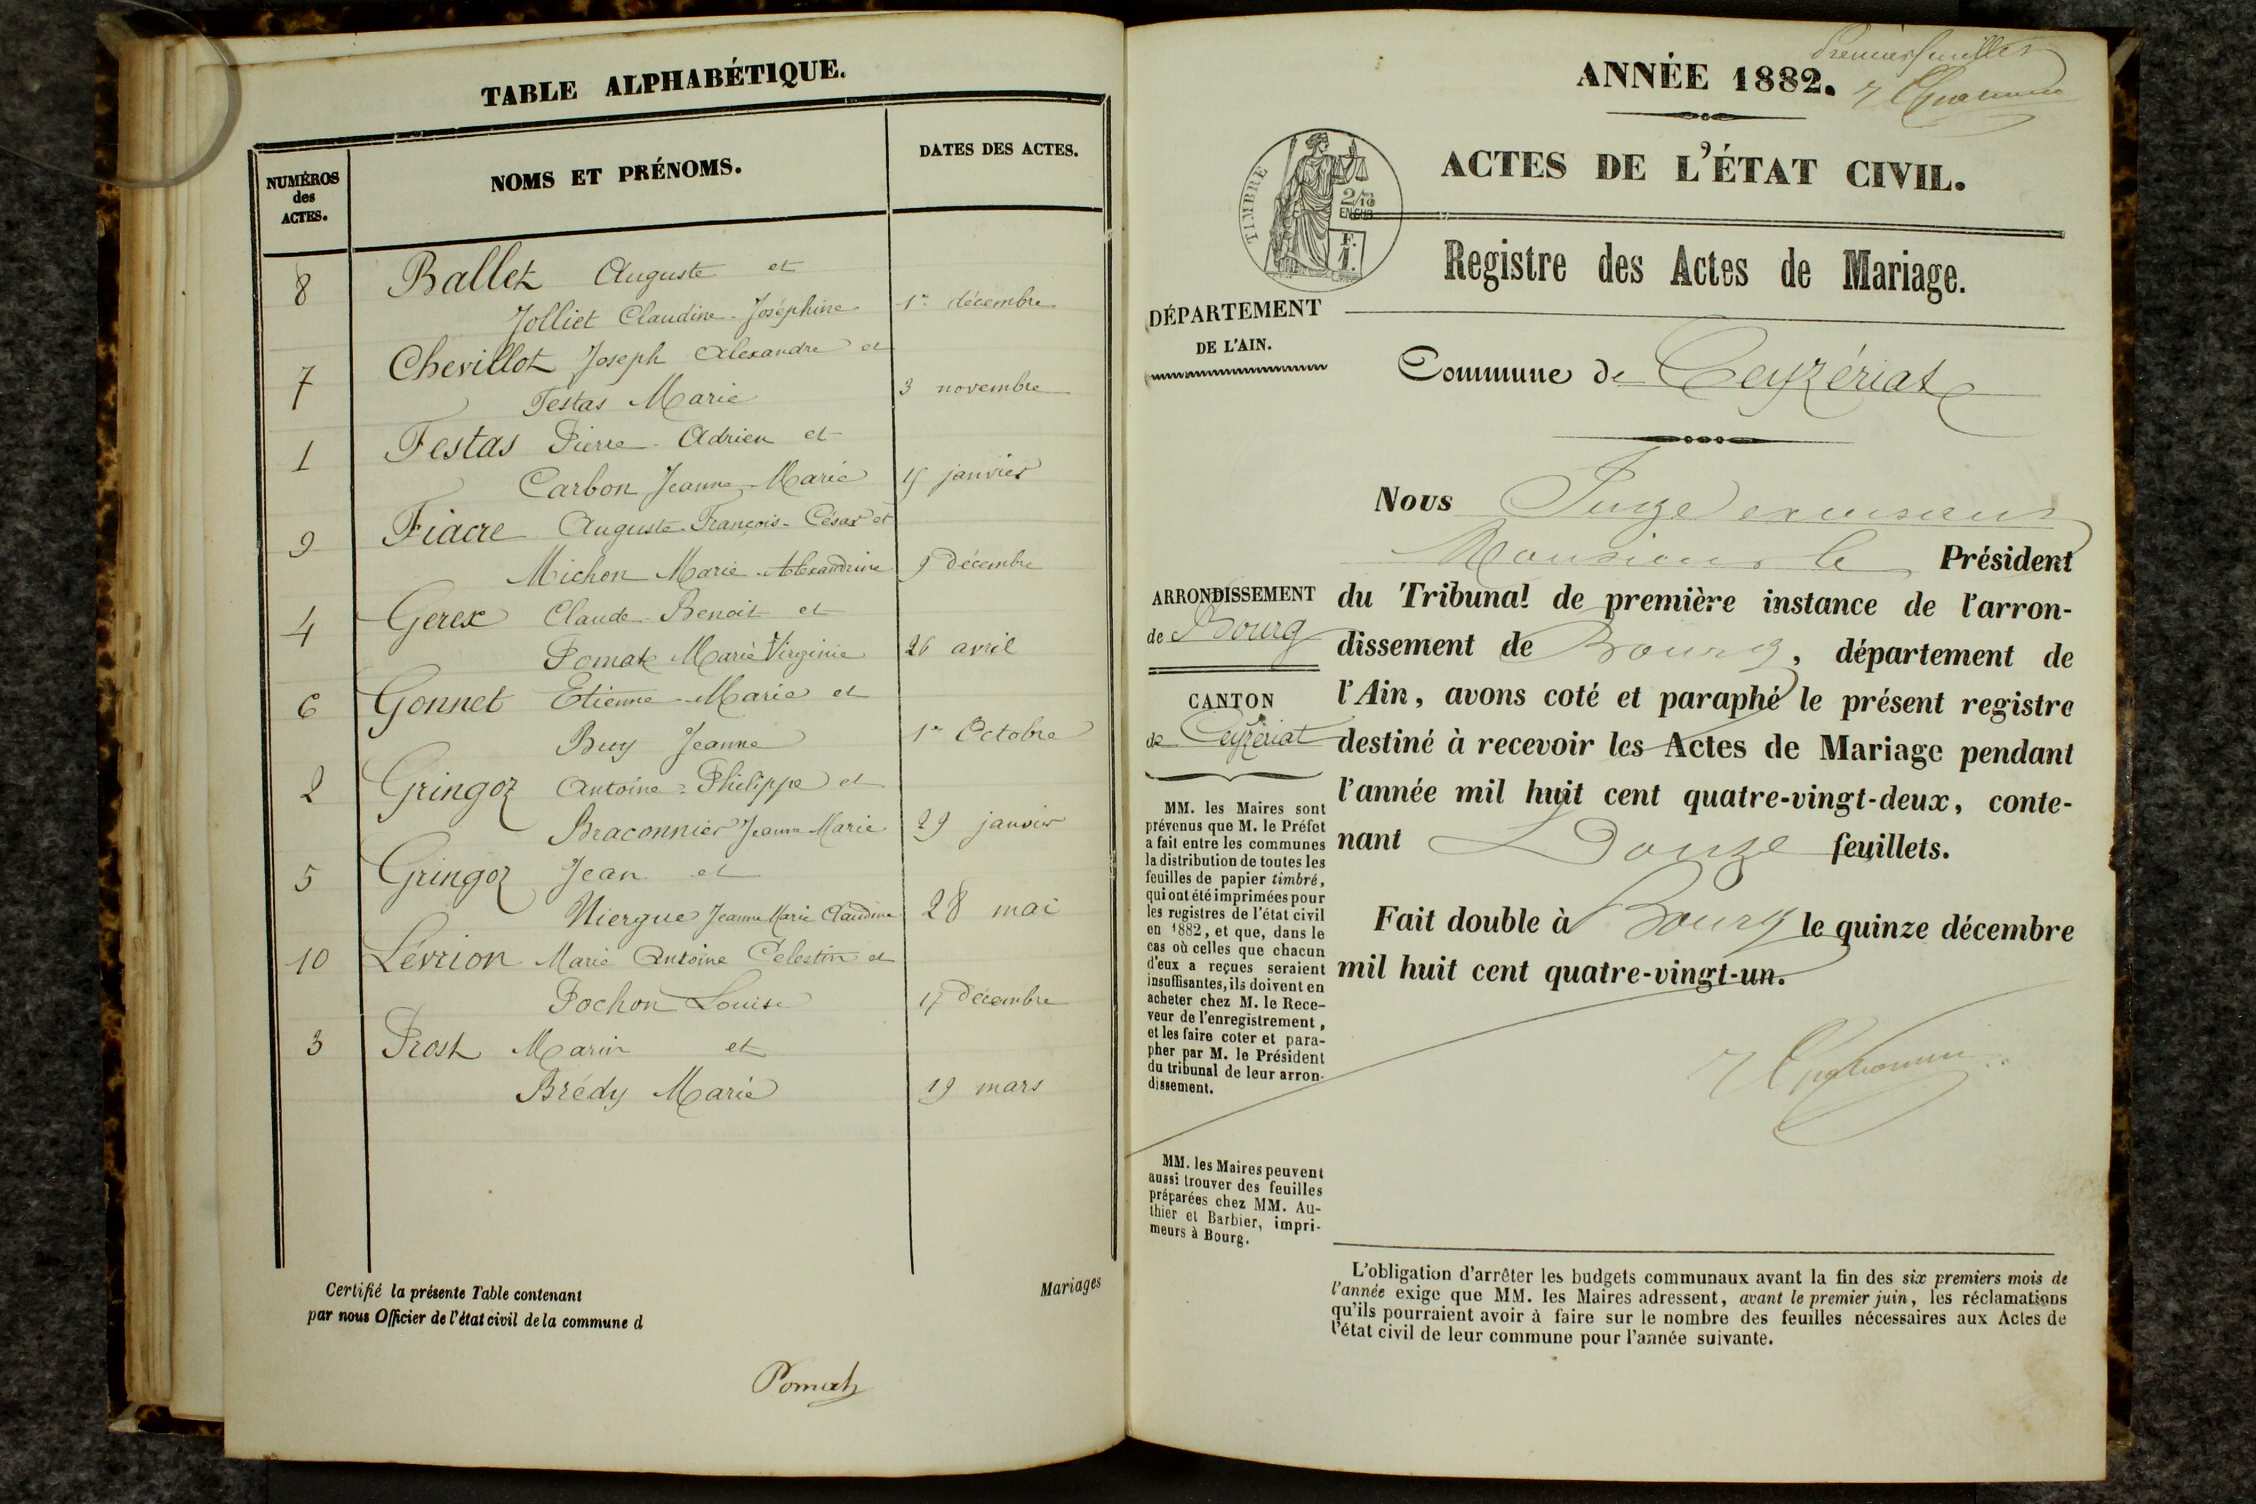 TABLE ALPHABÉTIQUE.
NUMÉROS
des
ACTES.
NOMS ET PRÉNOMS.
DATES DES ACTES.
8 Ballet Auguste et
Jolliet Claudine-Joséphine 1er décembre
7 Chevillot Joseph Alexandre et
Festas Marie 3 novembre
1 Festas Pierre-Adrien et
Carbon Jeanne-Marie 15 janvier
9 Fiacre Auguste-François-César et
Michon Marie-Alexandrine 9 Décembre
4 Gerex Claude-Benoit et
Pomat Marie Virginie 26 avril
6 Gonnet Etienne-Marie et
Buy Jeanne 1er Octobre
2 Gringoz Antoine-Philippe et
Braconnier Jeanne Marie 29 janvier
5 Gringoz Jean et
Niergue Jeanne Marie Claudine 28 mai
10 Lévrion Marie Antoine Célestin et
Pochon Louise 17 Décembre
3 Prost Marin et
Brédy Marie 19 mars
Certifié la présente Table contenant
par nous Officier de l'état civil de la commune d
Mariages
Pomat
Premier feuillet
ANNÉE 1882.
ACTES DE L'ÉTAT CIVIL.
TIMBRE
2/10
EN SUS
F.
1.
Registre des Actes de Mariage.
DÉPARTEMENT
DE L'AIN.
Commune de Ceyzériat
Nous Juge
Monsieur le Président
du Tribunal de première instance de l'arron-
dissement de Bourg, département de
l'Ain, avons coté et paraphé le présent registre
destiné à recevoir les Actes de Mariage pendant
l'année mil huit cent quatre-vingt-deux, conte-
nant Douze feuillets.
Fait double à Bourg le quinze décembre
mil huit cent quatre-vingt-un.
ARRONDISSEMENT
de Bourg
CANTON
de Ceyzériat
MM. les Maires sont
prévenus que M. le Préfet
a fait entre les communes
la distribution de toutes les
feuilles de papier timbré,
qui ont été imprimées pour
les registres de l'état civil
en 1882, et que, dans le
cas où celles que chacun
d'eux a reçues seraient
insuffisantes, ils doivent en
acheter chez M. le Rece-
veur de l'enregistrement,
et les faire coter et para-
pher par M. le Président
du tribunal de leur arron-
dissement.
MM. les Maires peuvent
aussi trouver des feuilles
préparées chez MM. Au-
thier et Barbier, impri-
meurs à Bourg.
L'obligation d'arrêter les budgets communaux avant la fin des six premiers mois de
l'année exige que MM. les Maires adressent, avant le premier juin, les réclamations
qu'ils pourraient avoir à faire sur le nombre des feuilles nécessaires aux Actes de
l'état civil de leur commune pour l'année suivante.